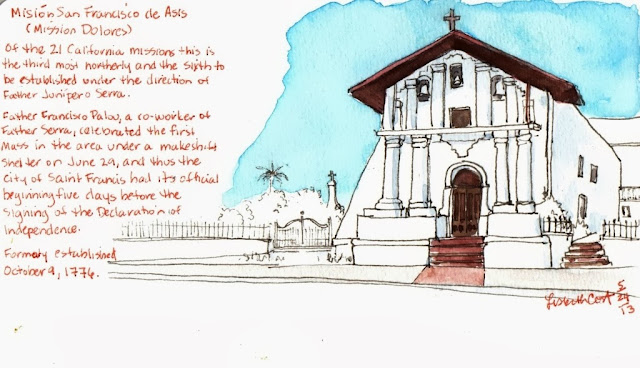 Misión San Francisco de Asís
(Mission Dolores)
Of the 21 California missions this is
the third most northerly and the sixth to
be established under the direction of
Father Junípero Serra.
Father Francisco Palou, a co-worker of
Father Serra, celebrated the first
Mass in the area under a makeshift
shelter on June 29, and thus the
city of Saint Francis had its official
beginning five days before the
signing of the Declaration of
Independence.
Formaly established
October 9, 1776.
5
24
13